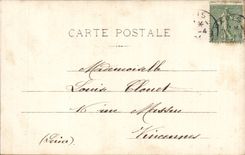 CARTE POSTALE
Mademoiselle
Louise Thouet
16 rue Massue
Vincennes
(Seine)